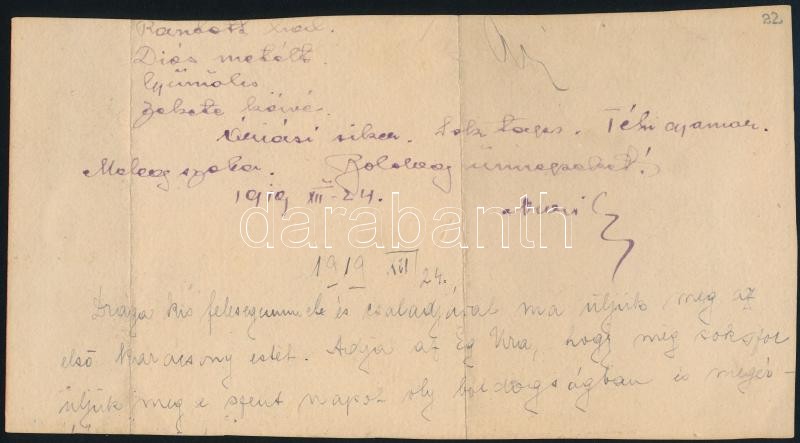 22
Rántott hal.
Diós metélt
Gyümölcs
Fekete kávé.
Óriási siker. Sok tagos. Téli gyamar.
Meleg szoba. Boldog ünnepeket!
1919 XII-24.
darabanth
1919 XII 24.
Draga kis felesegummele és családjával ma üljük meg az
első karacsony estét. Adja az Ég Ura, hogy még sokszor
üljük meg e szent napot oly boldogságban és megér-